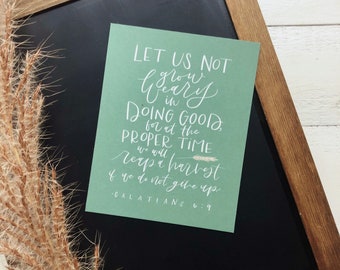 LET US NOT
grow
weary
in
DOING GOOD,
for at the
PROPER TIME
we will
reap a harvest
if we do not give up
GALATIANS 6:9